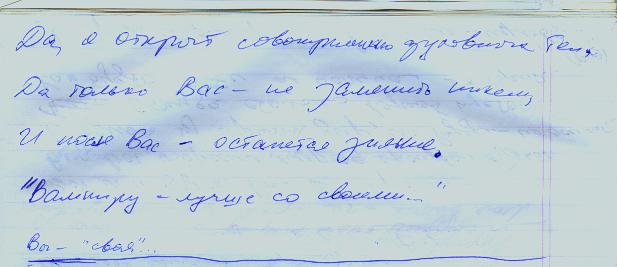 Да, я открыт совокуплению духовного и тел,
Да только Вас – не заменить никем,
И после Вас – останется зияние.
"Вампиру – лучше со своими..."
Вы – "своя"...